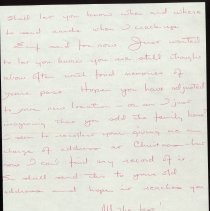 shall let you know when and where
to send cards when I reach up
Enuf said for now. Just wanted
to let you know you are still thought
about often with fond memories of
years past. Hope you have adjusted
to your new location - or am I just
imagining that you sold the family home?
I seem to remember your giving me a
change of address at Christmas - but
now I can find my record of it
I shall send this to your old
address and hope it reaches you
All the best!